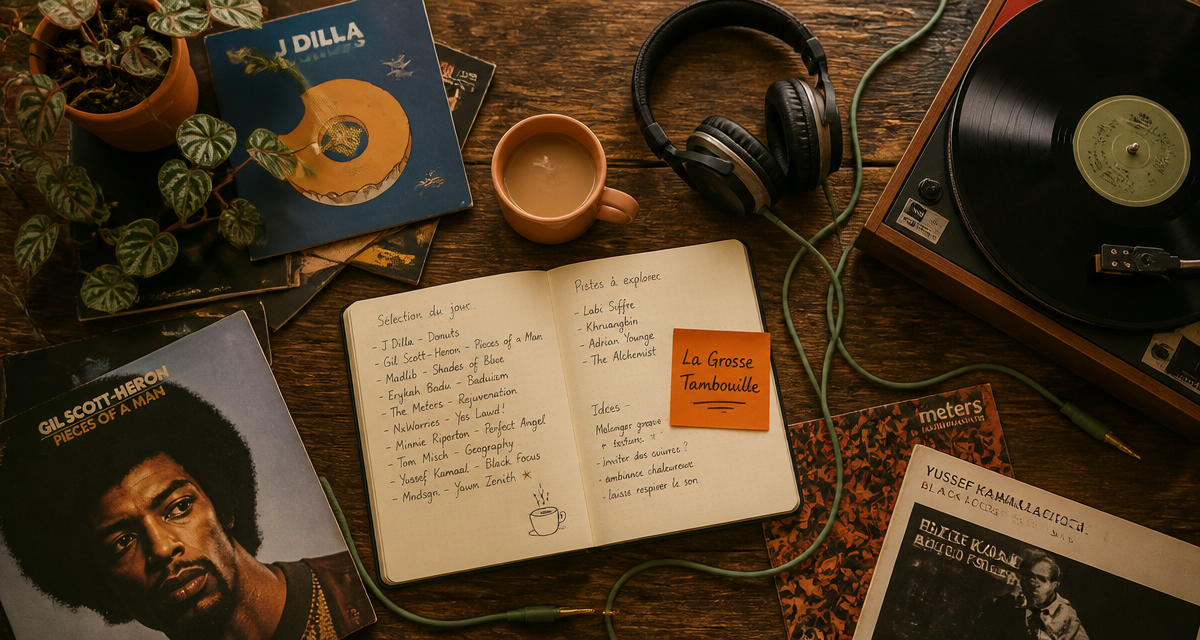 J DILLA
GIL SCOTT-HERON
PIECES OF A MAN
Sélection du jour
- J Dilla - Donuts
- Gil Scott-Heron - Pieces of a Man
- Madlib - Shades of Blue
- Erykah Badu - Baduizm
- The Meters - Rejuvenation
- NxWorries - Yes Lawd!
- Minnie Riperton - Perfect Angel
- Tom Misch - Geography
- Yussef Kamaal - Black Focus
- Mndsgn. - Yawn Zenith
Pistes à explorer
- Labi Siffre
- Khruangbin
- Adrian Younge
- The Alchemist
Idées -
- ambiance chaleureuse
- laisse respirer le son.
La Grosse
Tambouille
meters
YUSSEF